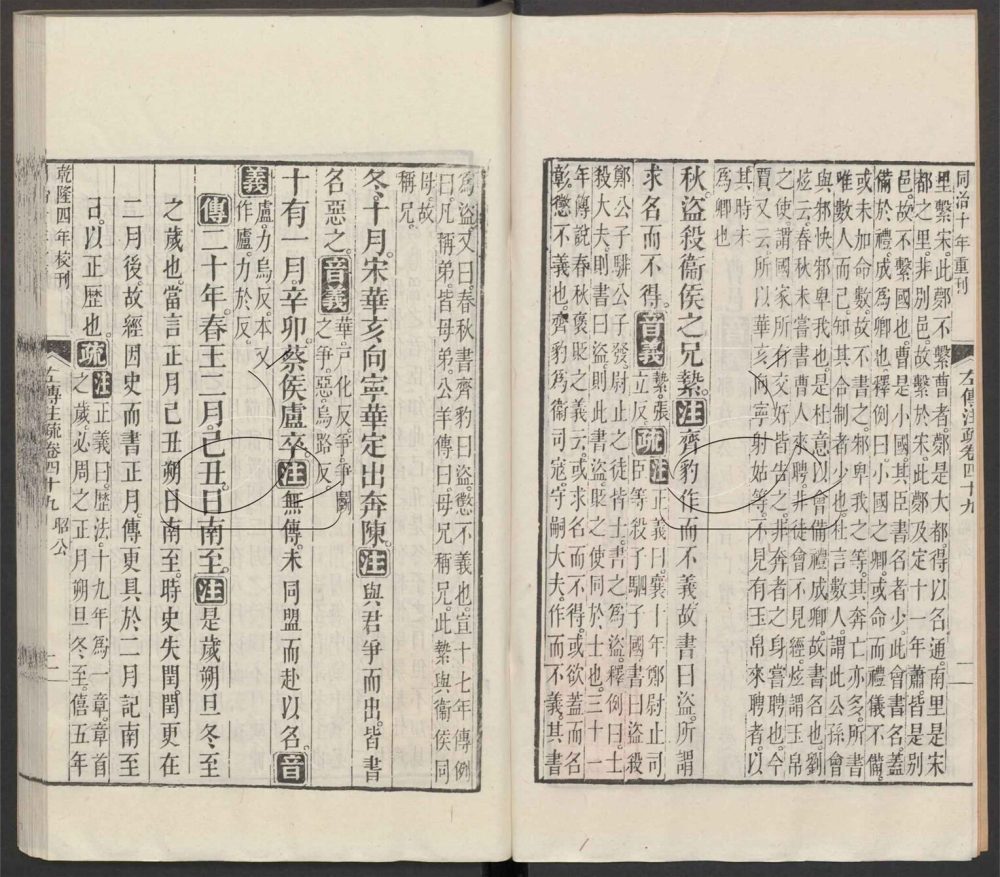 同治十年重刊 左傳注疏卷四十九 一
里繫宋此鄭不繫曹者鄭是大都得以名通南里是宋
都之里非別邑故繫於宋此鄭及定十一年蕭皆是別
邑故不繫國也曹是小國其臣書名者少此會書名蓋
備於禮成爲卿也釋例曰小國之卿或命而禮儀不備
或未加命數故不書之邾卑我之等其奔亡亦多所書
唯數人而已知其合制者少也杜言數人謂此公孫會
與邾快邾卑我也是杜意以會備禮成卿故書名也劉
炫云春秋未嘗書曹人來聘非徒會不見經炫謂玉帛
之使謂國家所有交好皆告之非奔者之身嘗聘也今
賈又云所以華亥向寧射姑等不見有玉帛來聘者以
其時未
爲卿也
秋。盜殺衞侯之兄縶。注齊豹作而不義。故書曰盜。所謂
求名而不得。音義縶。張立反。疏注正義曰襄十年鄭尉止司
臣等殺子駟子國書曰盜殺
鄭公子騑公子發尉止之徒皆士書之爲盜釋例曰士
殺大夫則書曰盜則此書盜貶之使同於士也三十一
年傳說春秋褒貶之義云或求名而不得或欲蓋而名
彰懲不義也齊豹爲衞司寇守嗣大夫作而不義其書
爲盜又曰春秋書齊豹曰盜懲不義也宣十七年傳例
曰凡稱弟皆母弟公羊傳曰母兄稱兄此縶與衞侯同
母故
稱兄
冬。十月。宋華亥向寧華定出奔陳。注與君爭而出。皆書
名惡之。音義華。戶化反。爭。爭鬬
之爭。惡。烏路反。
十有一月。辛卯。蔡侯盧卒。注無傳。未同盟而赴以名。音
義盧。力烏反。本又
作廬。力於反。
傳二十年。春王二月。己丑。日南至。注是歲朔旦冬至
之歲也。當言正月己丑朔日南至。時史失閏。閏更在
二月後。故經因史而書正月。傳更具於二月記南至
日。以正歷也。疏注正義曰。歷法。十九年爲一章。章首
之歲。必周之正月朔旦冬至。僖五年
乾隆四年校刊 左傳注疏卷四十九 昭公 二